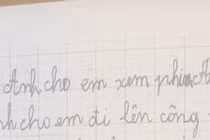 Anh cho em xem phim
cho em đi lên công